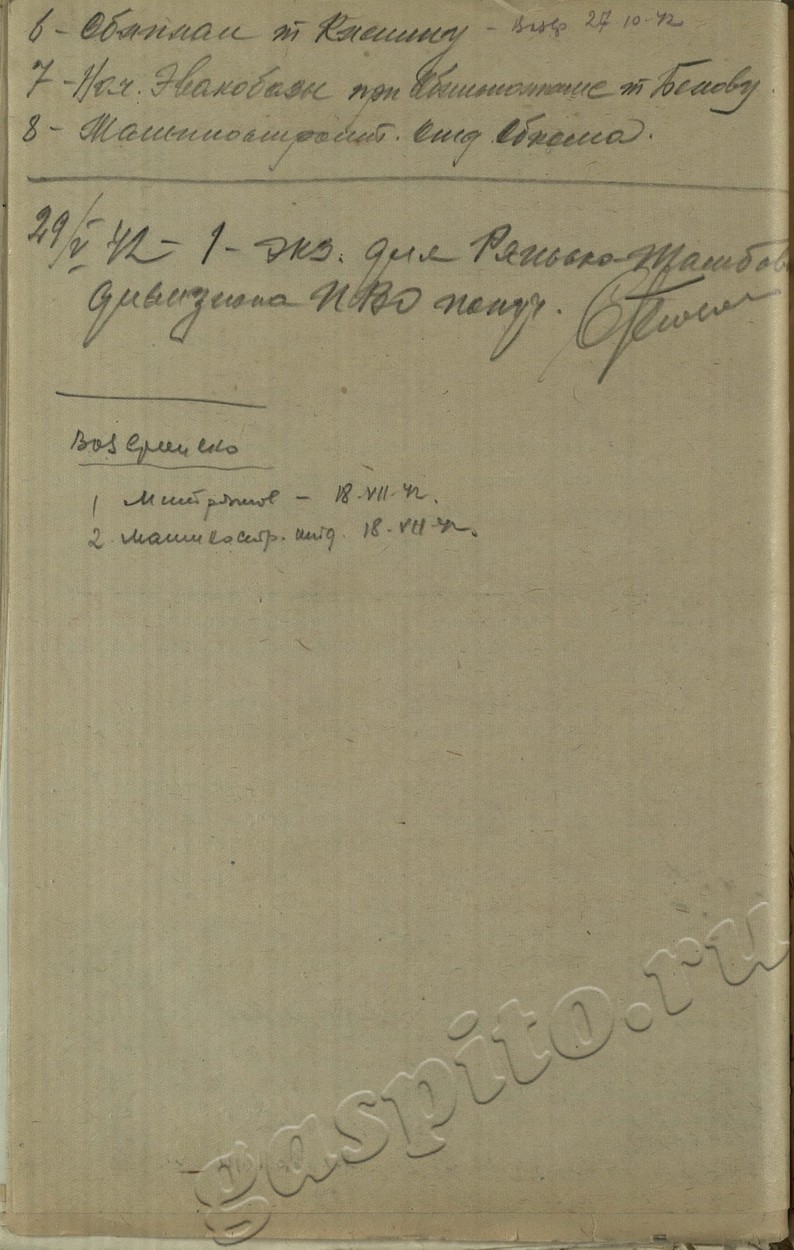 6 - Облплан т Клешину - Возвр 27 10-42
7 - Нач. Эвакобазы при Облисполкоме т Белову.
8 - Машиностроит. отд Обкома.
29/V 42 - 1 - экз. для Рязанско-Тамбов
дивизиона ПВО получ.
Возвращено
1 Митряков - 18-VII-42.
2. Машиностр. отд. 18-VII-42.
gaspito.ru